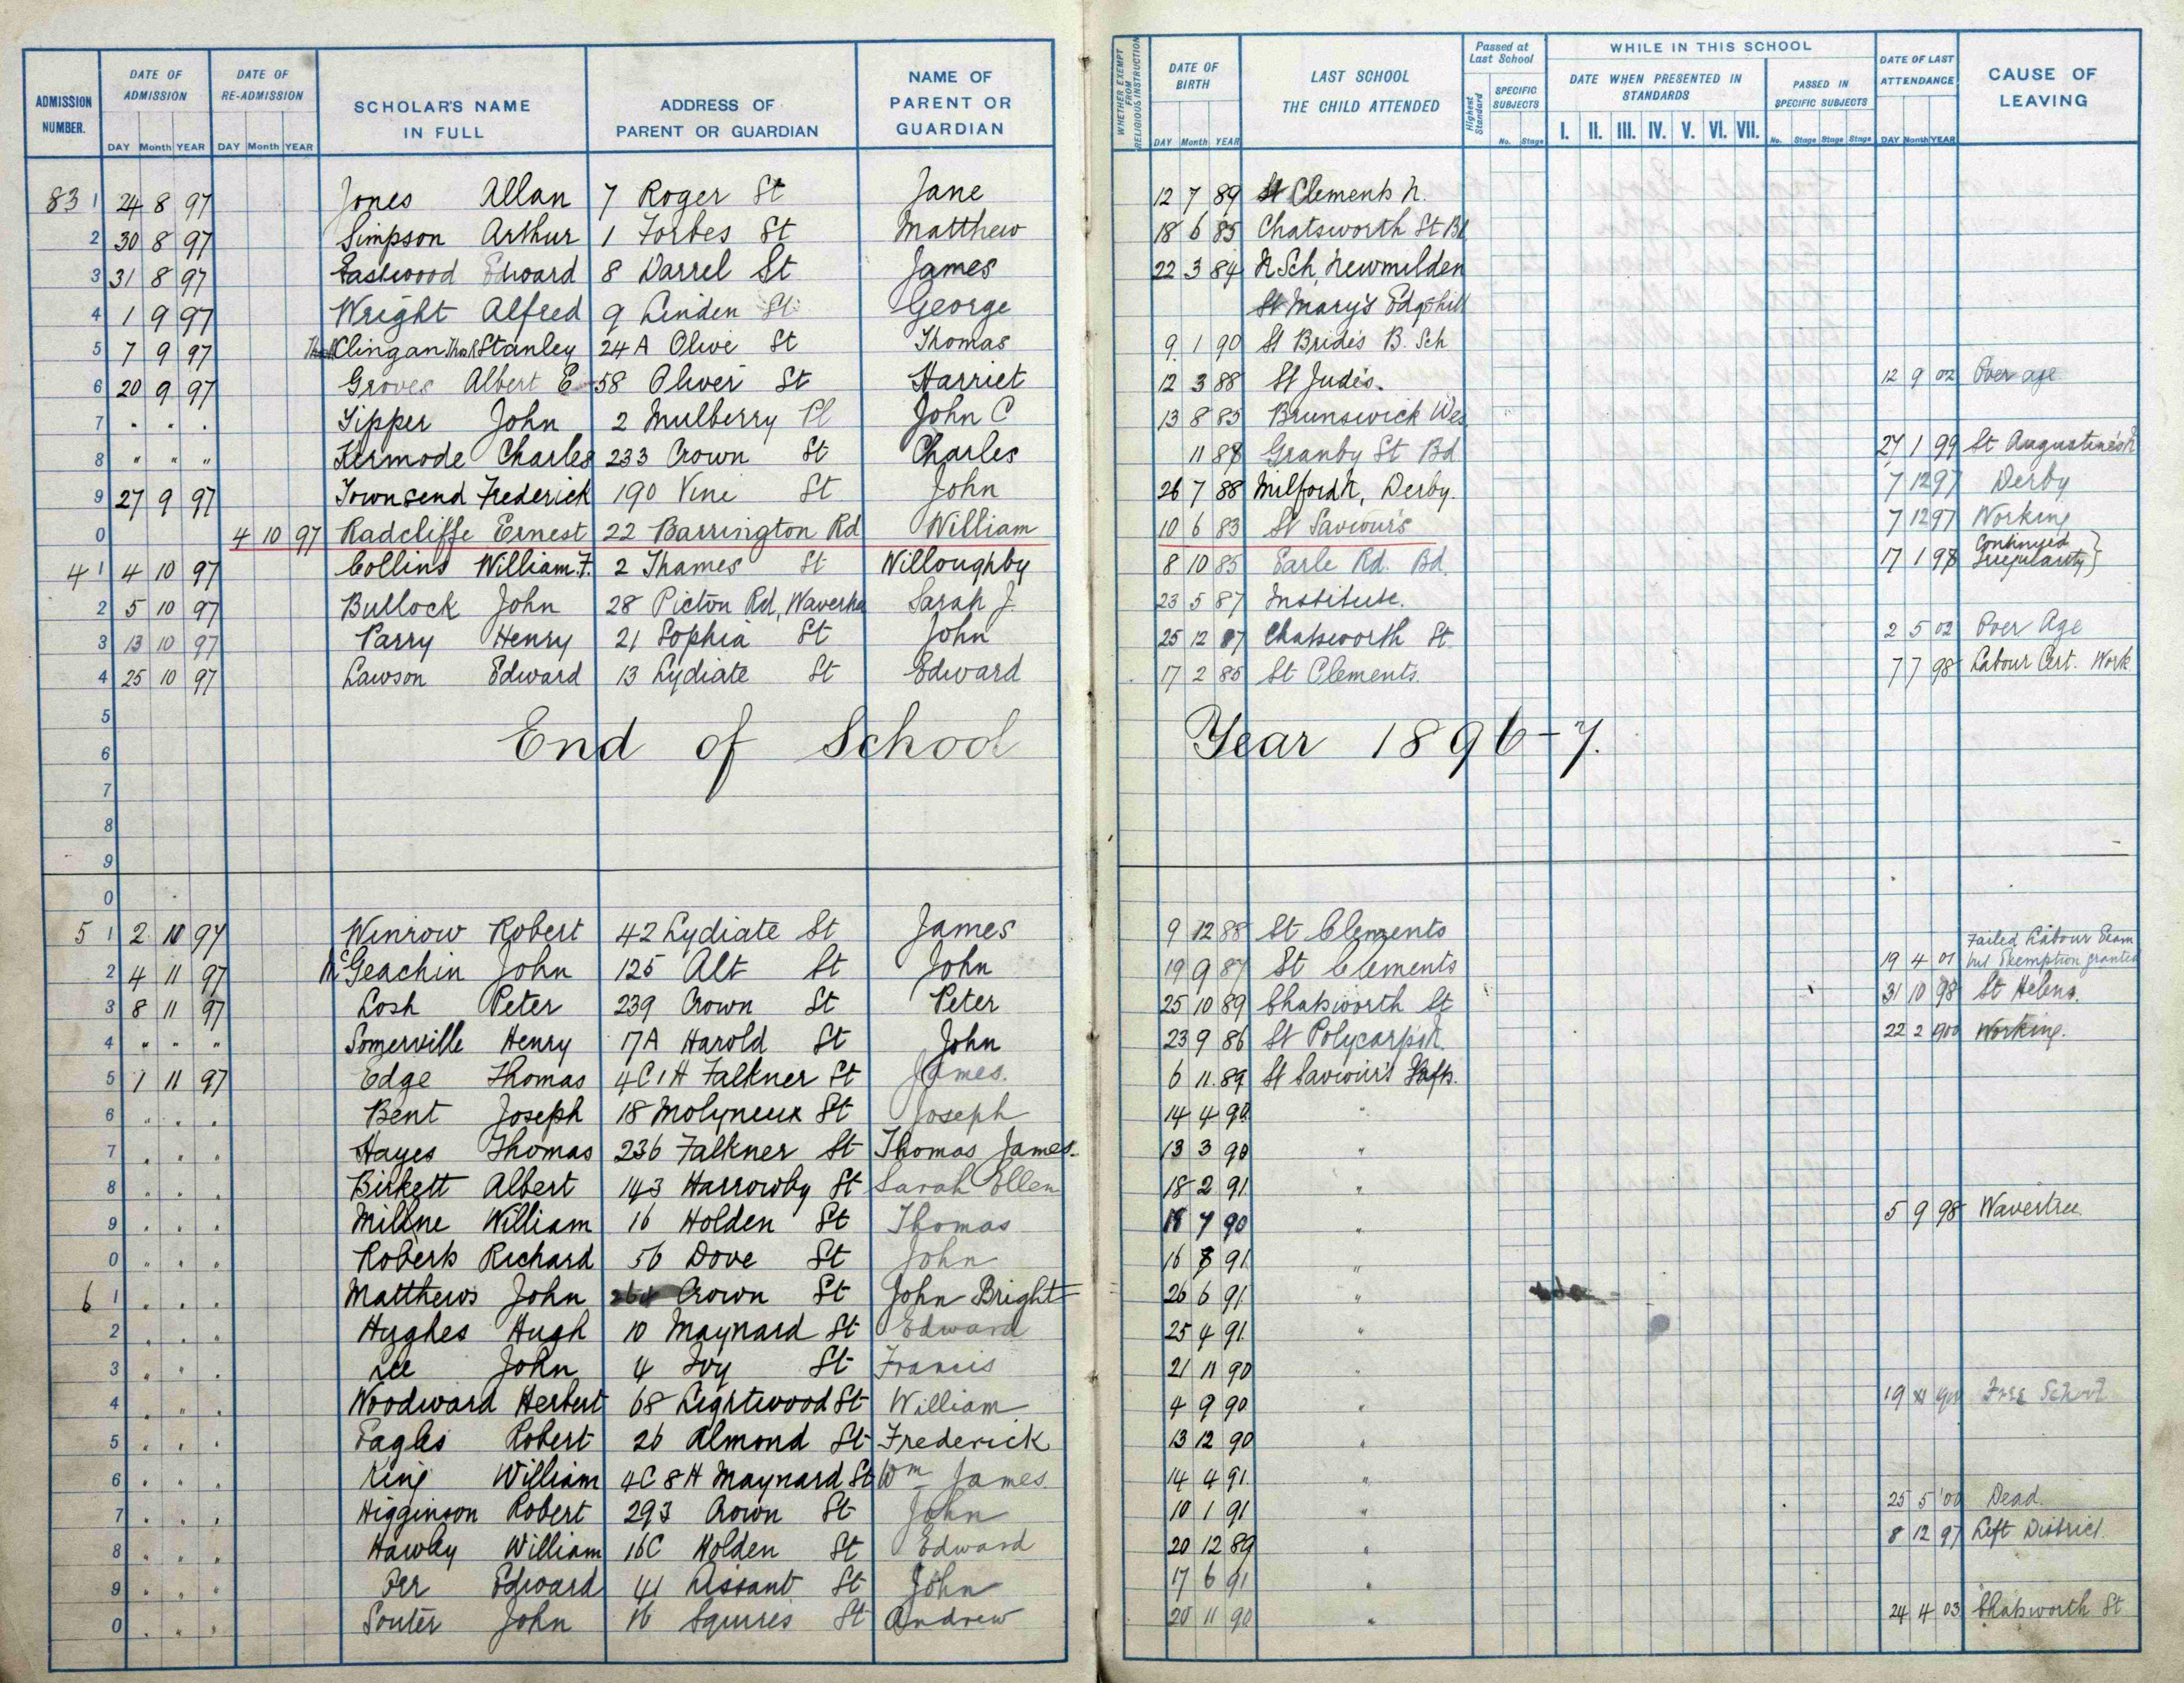 ADMISSION NUMBER. DATE OF ADMISSION DATE OF RE-ADMISSION SCHOLAR'S NAME IN FULL ADDRESS OF PARENT OR GUARDIAN NAME OF PARENT OR GUARDIAN WHETHER EXEMPT FROM RELIGIOUS INSTRUCTION DATE OF BIRTH LAST SCHOOL THE CHILD ATTENDED Passed at Last School WHILE IN THIS SCHOOL DATE OF LAST ATTENDANCE CAUSE OF LEAVING
Highest Standard SPECIFIC SUBJECTS DATE WHEN PRESENTED IN STANDARDS PASSED IN SPECIFIC SUBJECTS
DAY Month YEAR DAY Month YEAR DAY Month YEAR No. Stage I. II. III. IV. V. VI. VII. No. Stage Stage Stage DAY Month YEAR
83 1 24 8 97 Jones Allan 7 Roger St Jane 12 7 89 St Clements N.
2 30 8 97 Simpson Arthur 1 Forbes St Matthew 18 6 85 Chatsworth St Bd
3 31 8 97 Eastwood Edward 8 Darrel St James 22 3 84 N Sch Newmilden
4 1 9 97 Wright Alfred 9 Linden St George St Mary's Edgehill
5 7 9 97 Clingan Thos Stanley 24A Olive St Thomas 9 1 90 St Bride's B. Sch
6 20 9 97 Groves Albert E 58 Oliver St Harriet 12 3 88 St Jude's. 12 9 02 Over age
7 " " " Tipper John 2 Mulberry Pl John C 13 8 85 Brunswick Wes
8 " " " Kermode Charles 233 Crown St Charles 11 87 Granby St Bd 27 1 99 St Augustine's
9 27 9 97 Townsend Frederick 190 Vine St John 26 7 88 Milford N, Derby. 7 12 97 Derby
0 4 10 97 Radcliffe Ernest 22 Barrington Rd William 10 6 83 St Saviour's 7 12 97 Working
4 1 4 10 97 Collins William F. 2 Thames St Willoughby 8 10 85 Earle Rd. Bd. 17 1 98 Continued Irregularity }
2 5 10 97 Bullock John 28 Picton Rd, Waver Sarah J. 23 5 87 Institute.
3 13 10 97 Parry Henry 21 Sophia St John 25 12 87 Chatsworth St. 2 5 02 Over Age
4 25 10 97 Lawson Edward 13 Lydiate St Edward 17 2 85 St Clements. 7 7 98 Labour Cert. Work
5
6 End of School Year 1896-7.
7
8
9
0
5 1 2 10 97 Winrow Robert 42 Lydiate St James 9 12 88 St Clements
2 4 11 97 McGeachin John 125 Alt St John 19 9 87 St Clements 19 4 01 Failed Labour Exam but Exemption granted
3 8 11 97 Losh Peter 239 Crown St Peter 25 10 89 Chatsworth St 31 10 98 St Helens.
4 " " " Somerville Henry 17A Harold St John 23 9 86 St Polycarp's N. 22 2 900 Working.
5 1 11 97 Edge Thomas 4C 1H Falkner St James. 6 11 89 St Saviour's Infts.
6 " " " Bent Joseph 18 Molyneux St Joseph 14 4 90 "
7 " " " Hayes Thomas 236 Falkner St Thomas James. 13 3 90 "
8 " " " Birkett Albert 143 Harrowby St Sarah Ellen 18 2 91 "
9 " " " Millne William 16 Holden St Thomas 7 90 " 5 9 98 Wavertree
0 " " " Roberts Richard 56 Dove St John 16 91 "
6 1 " " " Matthews John 264 Crown St John Bright 26 6 91 "
2 " " " Hughes Hugh 10 Maynard St Edward 25 4 91 "
3 " " " Lee John 4 Ivy St Francis 21 11 90 "
4 " " " Woodward Herbert 68 Lightwood St William 4 9 90 " 19 Free School
5 " " " Eagles Robert 26 Almond St Frederick 13 12 90 "
6 " " " King William 4C 8H Maynard St Wm James 14 4 91 "
7 " " " Higginson Robert 293 Crown St John 10 1 91 " 25 5 '00 Dead.
8 " " " Hawley William 16C Holden St Edward 20 12 89 " 8 12 97 Left District.
9 " " " Orr Edward 41 St John 17 6 91 "
0 " " " Souter John 16 Squires St Andrew 20 11 90 " 24 4 03 Chatsworth St